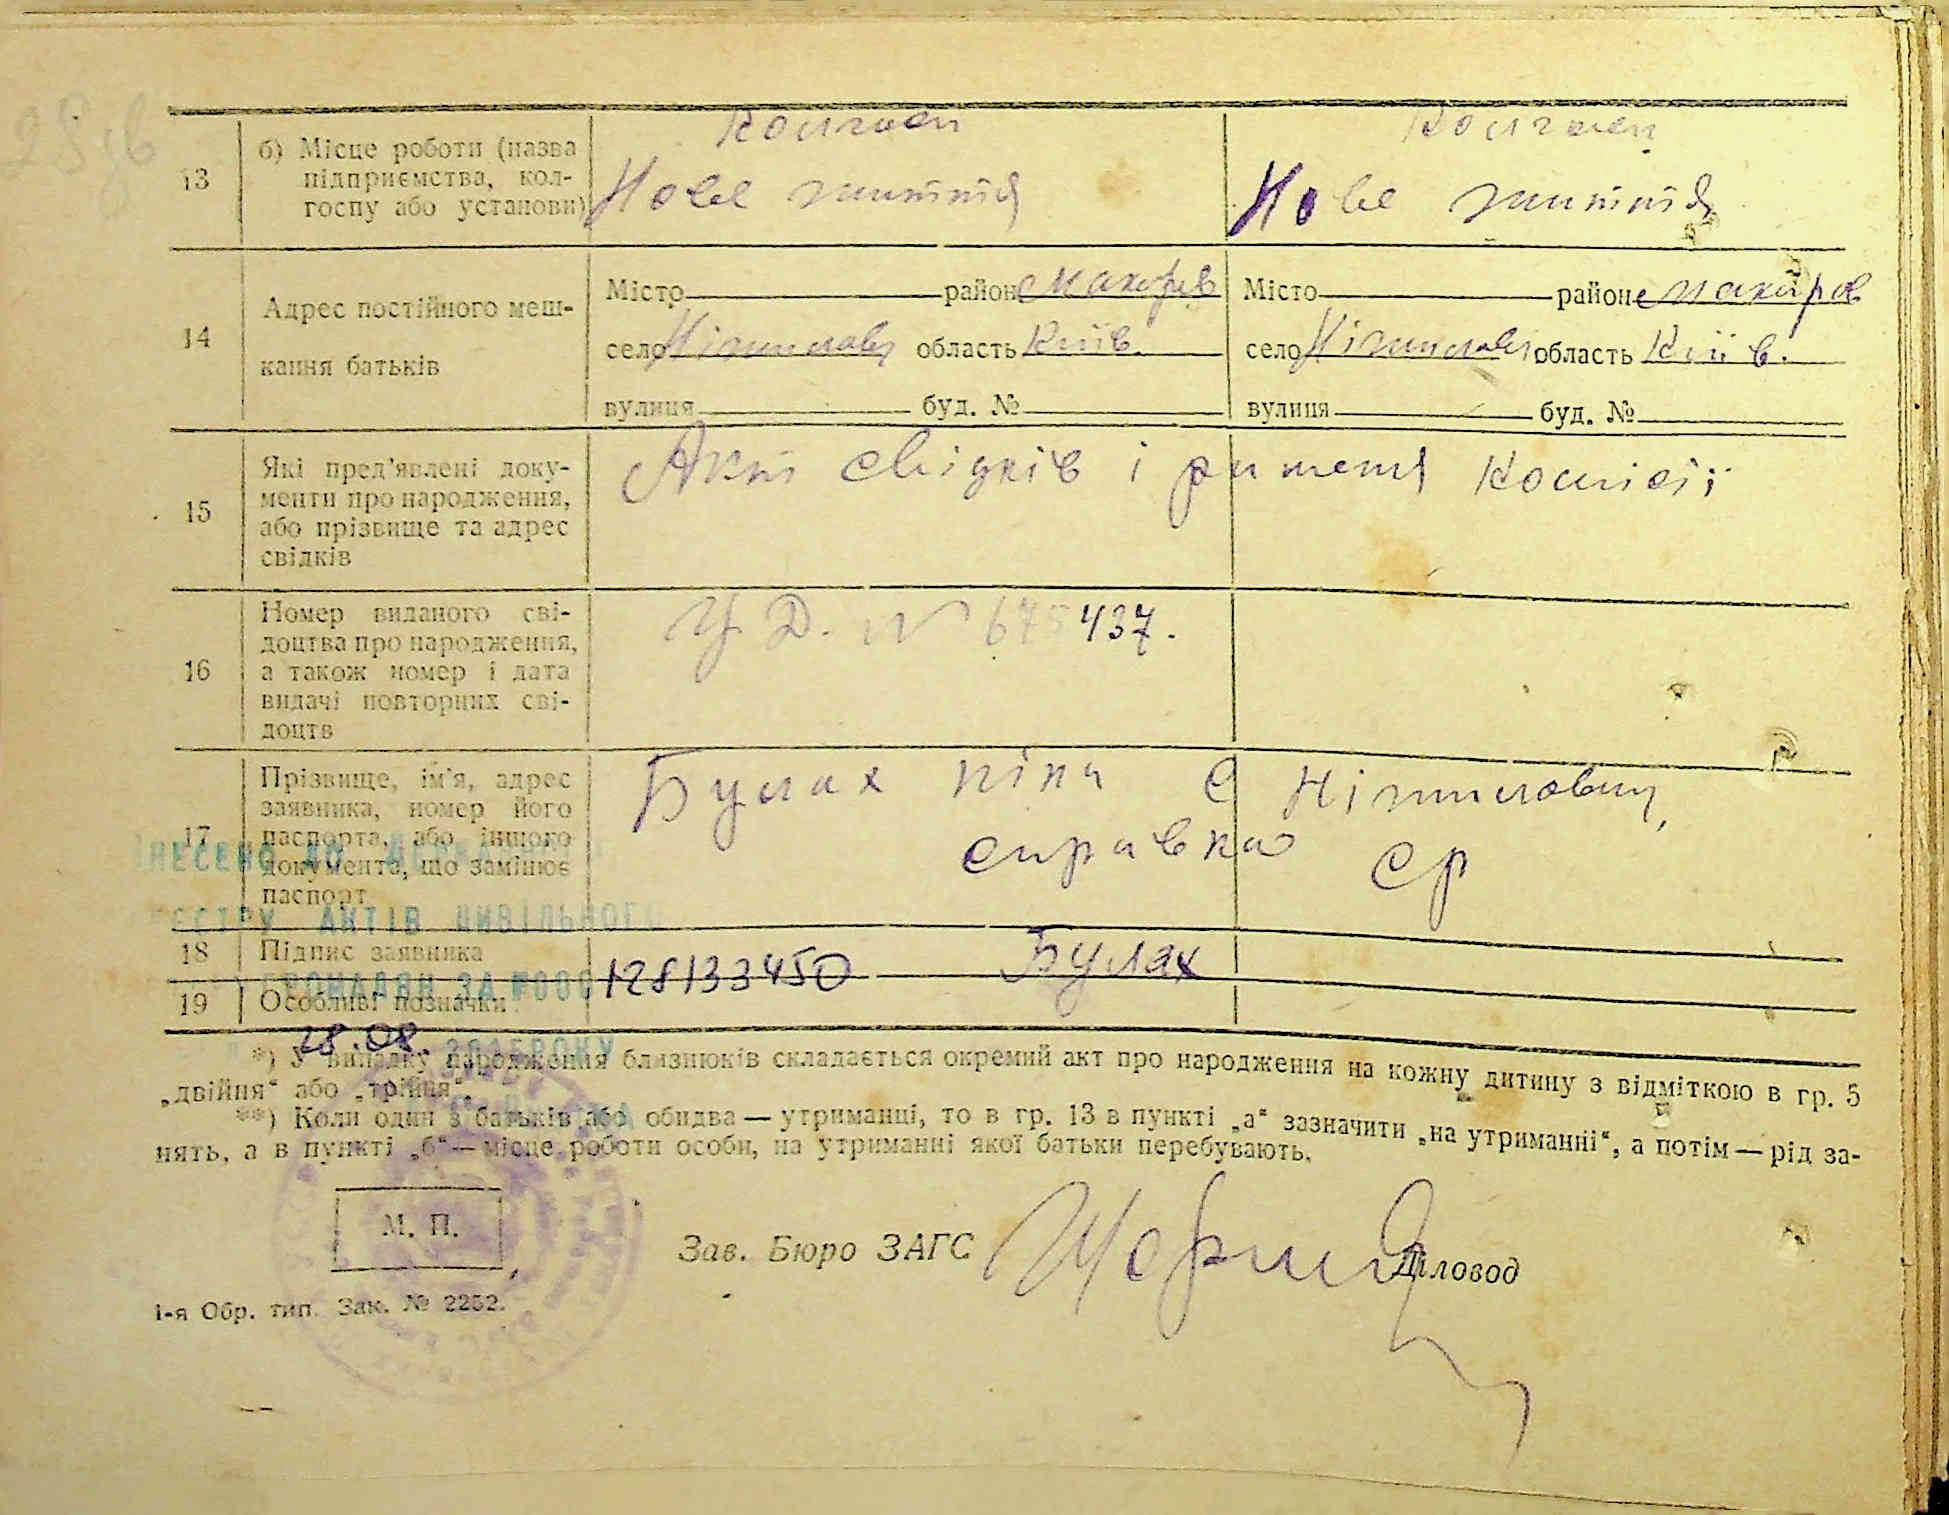 13 б) Місце роботи (назва підприємства, кол-
госпу або установи)
Колгосп Колгосп
Нове життя Нове життя
14 Адрес постійного меш-
кання батьків
Місто район Макарів Місто район Макарів
село область Київ. село область Київ.
вулиця буд. № вулиця буд. №
15 Які пред'явлені доку-
менти про народження,
або прізвище та адрес
свідків
Акт свідків і комісії
16 Номер виданого сві-
доцтва про народження,
а також номер і дата
видачі повторних сві-
доцтв
№ 675437.
17 Прізвище, ім'я, адрес
заявника, номер його
паспорта, або іншого
документа, що замінює
паспорт
Булах Ніна Є
справка СР
ВНЕСЕНО ДО
РЕЄСТРУ АКТІВ ЦИВІЛЬНОГО
ГРОМАДЯН ЗА №000
18 Підпис заявника Булах
128133450
19 Особливі позначки
28.08. РОКУ
*) У випадку народження близнюків складається окремий акт про народження на кожну дитину з відміткою в гр. 5
„двійня“ або „трійня“.
**) Коли один з батьків або обидва — утриманці, то в гр. 13 в пункті „а“ зазначити „на утриманні“, а потім — рід за-
нять, а в пункті „б“ — місце роботи особи, на утриманні якої батьки перебувають.
М. П.
Зав. Бюро ЗАГС Діловод
1-я Обр. тип. Зак. № 2252.